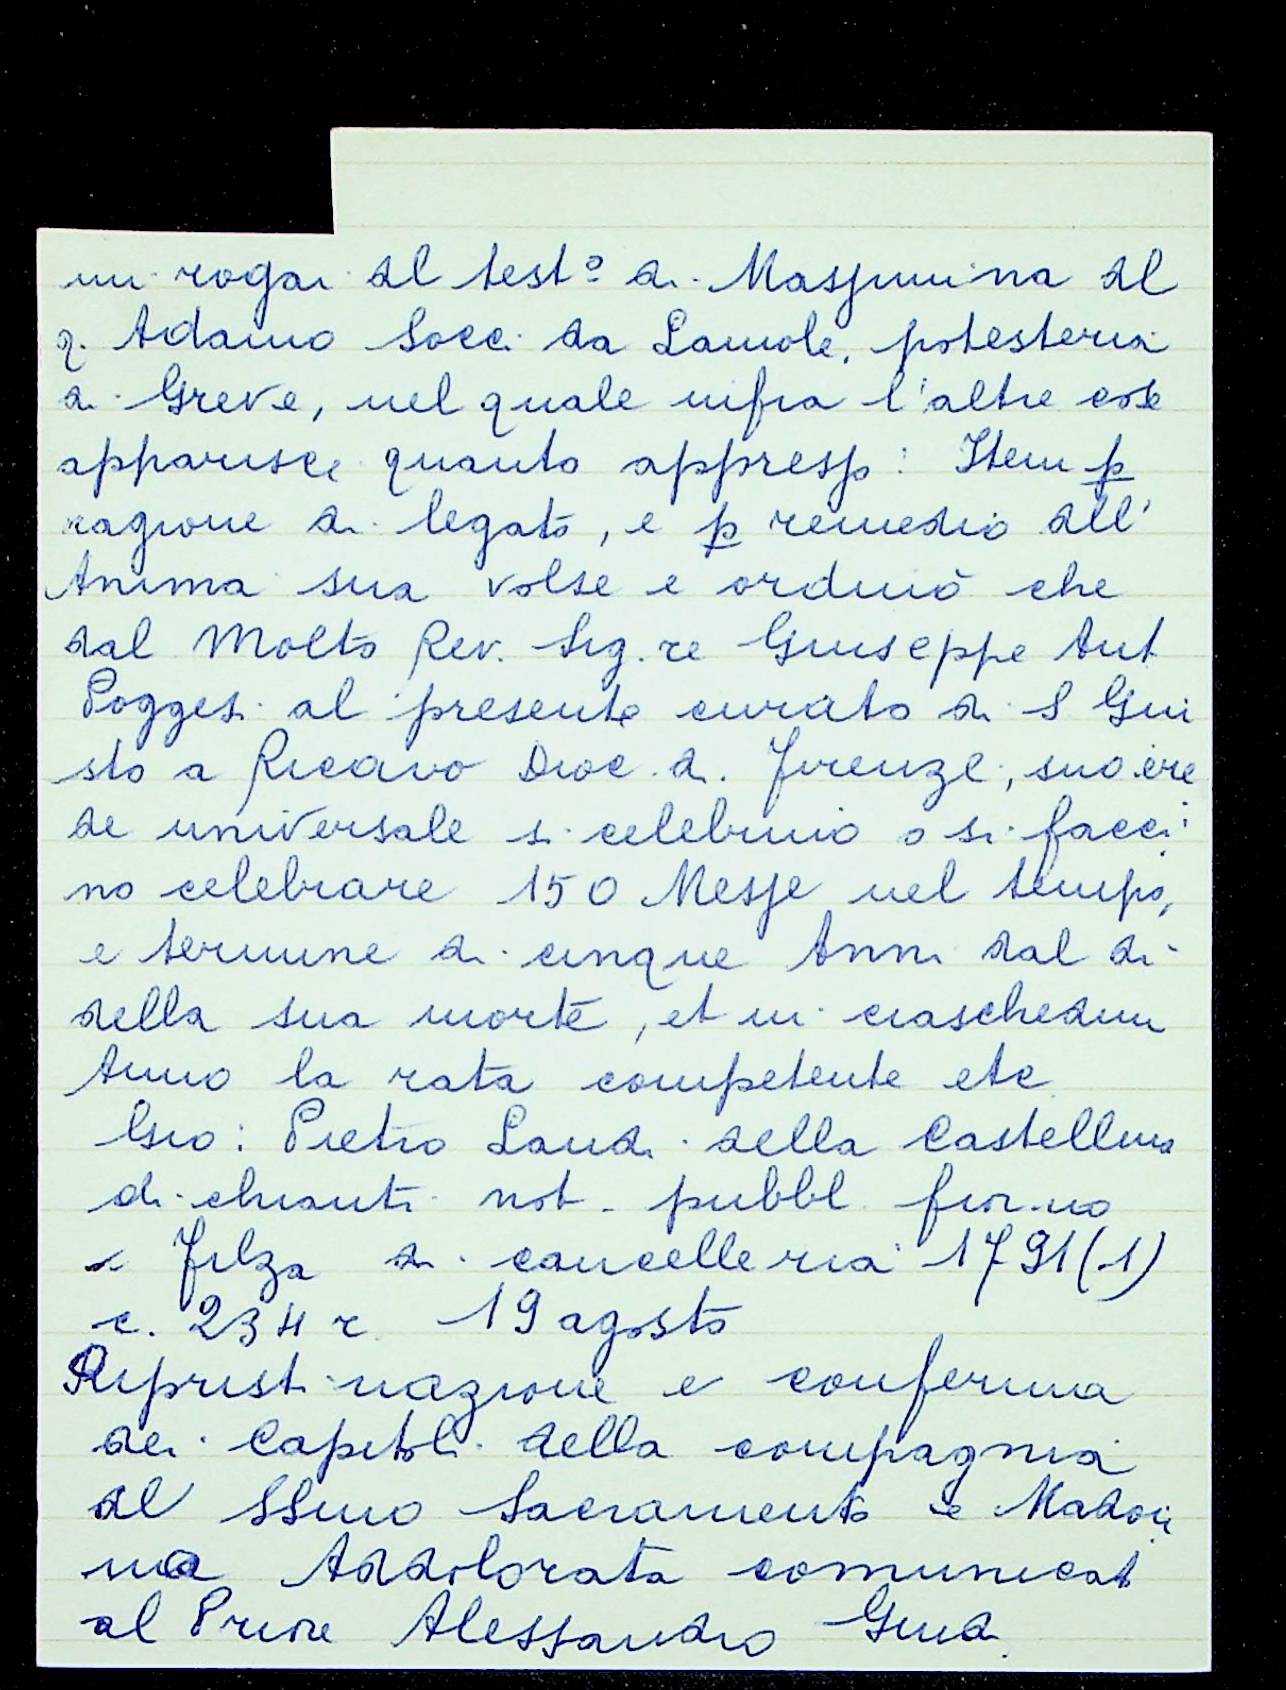 mi rogai del test.º di Massimina del
q. Adamo Socci da Lamole, potesteria
di Greve, nel quale infra l'altre cose
apparisce quanto appresso: Item p
ragione di legato, e p remedio dell'
Anima sua volse e ordinò che
dal Molto Rev. Sig.re Giuseppe Ant
Poggesi al presente curato di S Giu
sto a Ricavo Dioc. di Firenze, suo ere
de universale si celebrino o si facci
no celebrare 150 Messe nel tempo,
e termine di cinque Anni dal dì
della sua morte, et in ciaschedun
Anno la rata competente etc
Gio: Pietro Landi della Castellina
di chianti not. pubbl. fior.no
Filza di cancelleria 1791(1)
c. 234 r. 19 agosto
Ripristinazione e conferma
dei Capitoli della compagnia
del SSmo Sacramento e Madon
na Addolorata comunicat
al Priore Alessandro Giudi